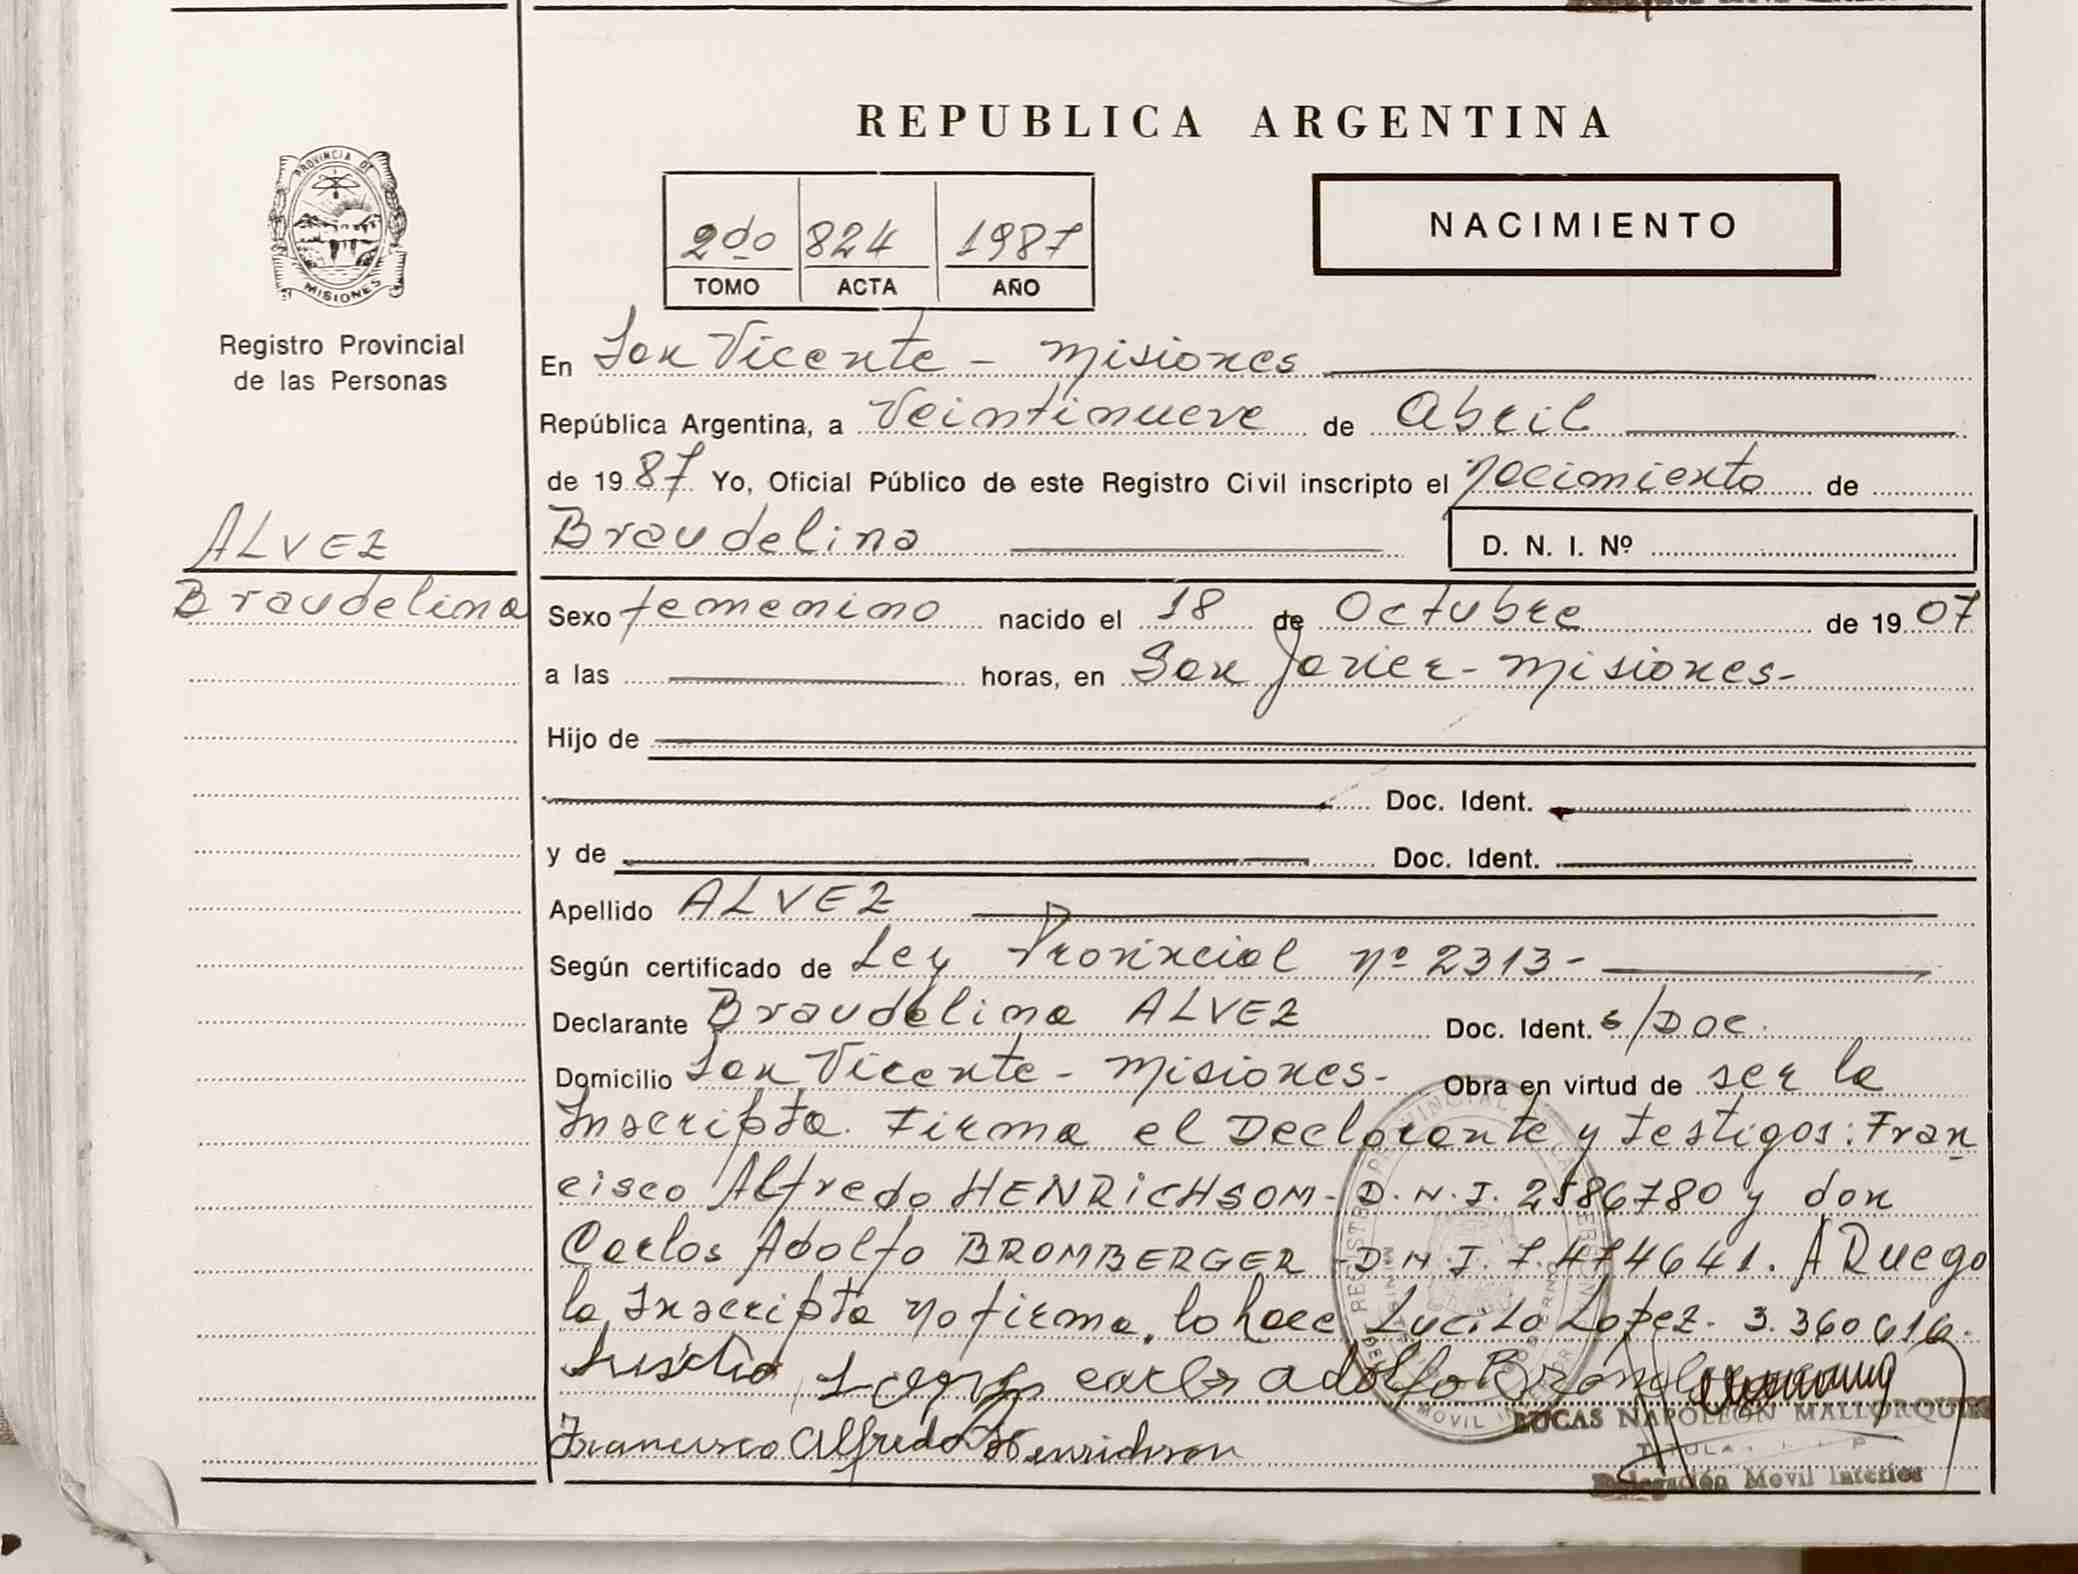 REPUBLICA ARGENTINA
PROVINCIA DE
MISIONES
Registro Provincial
de las Personas
2do 824 1987
TOMO ACTA AÑO
NACIMIENTO
En San Vicente - Misiones
República Argentina, a Veintinueve de Abril
de 1987 Yo, Oficial Público de este Registro Civil inscripto el Nacimiento de
ALVEZ
Braudelina
Braudelina D. N. I. Nº
Sexo femenino nacido el 18 de Octubre de 1907
a las horas, en San Javier - Misiones-
Hijo de
Doc. Ident.
y de Doc. Ident.
Apellido ALVEZ
Según certificado de Ley Provincial Nº 2313-
Declarante Braudelina ALVEZ Doc. Ident. s/Doc.
Domicilio San Vicente - Misiones- Obra en virtud de ser la
Inscripta. Firma el Declarante y testigos: Fran
cisco Alfredo HENRICHSOM- D.N.I. 2586780 y don
Carlos Adolfo BROMBERGER - D.N.I. 7.474641. A Ruego
la Inscripta no firma, lo hace Lucito Lopez. 3.360616.
carlos adolfo
LUCAS NAPOLEON MALLORQUIN
Francisco Alfredo Henrichson
Delegación Movil Interior